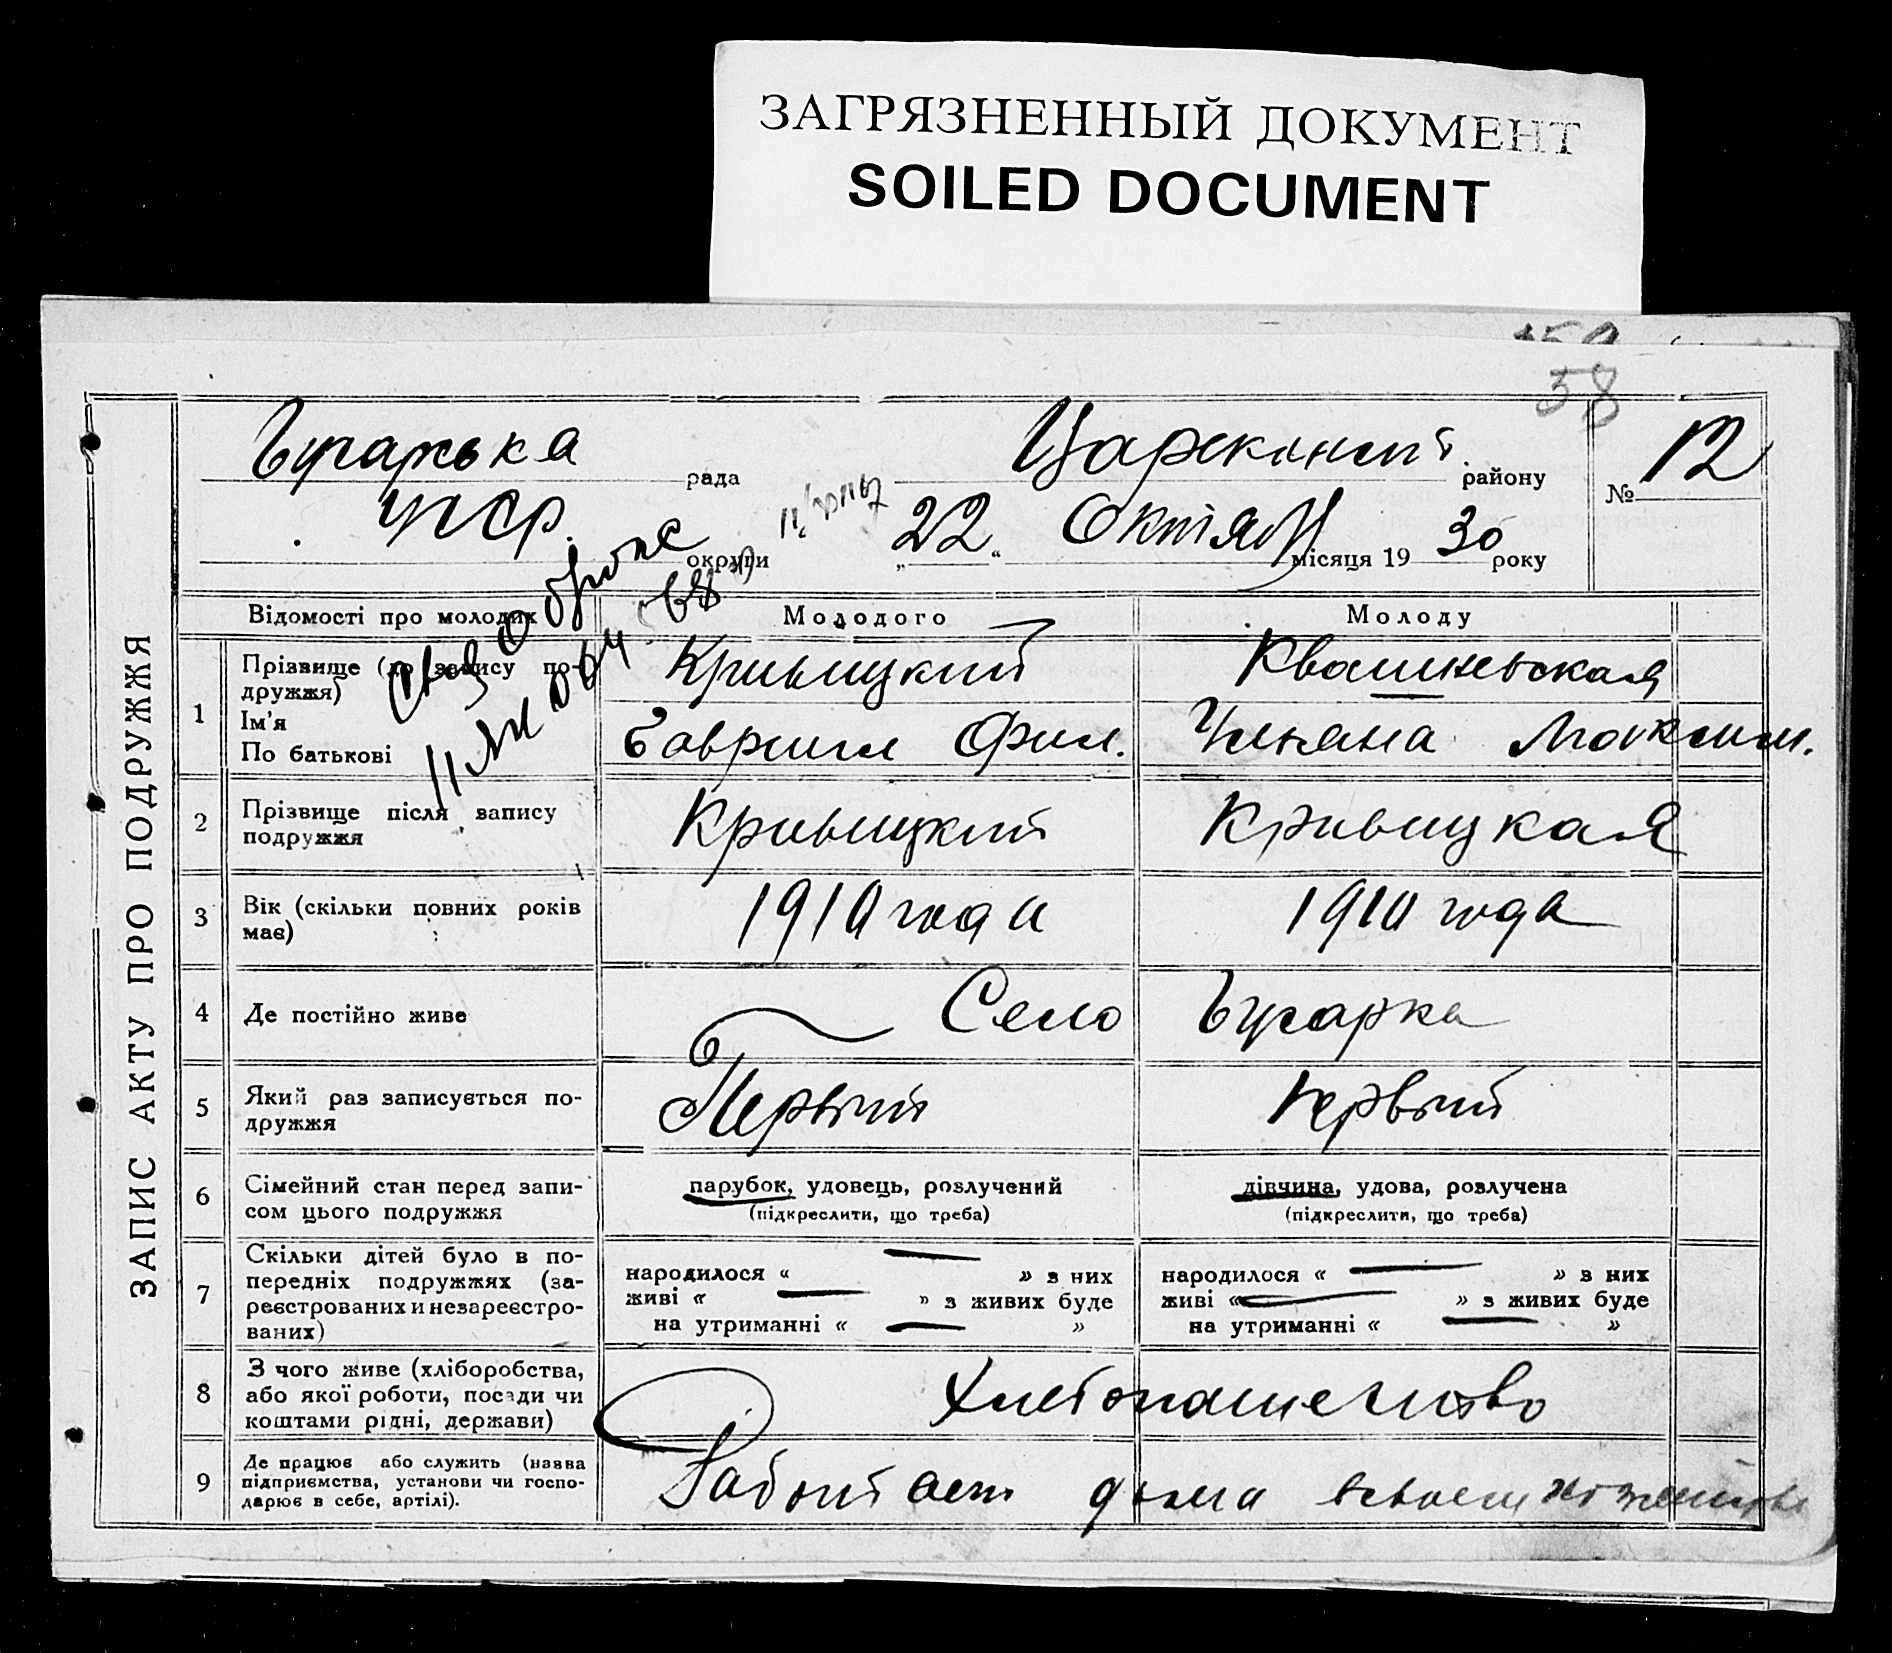 ЗАГРЯЗНЕННЫЙ ДОКУМЕНТ
SOILED DOCUMENT
58
ЗАПИС АКТУ ПРО ПОДРУЖЖЯ
рада
району
№ 12
УССР. округи
„22“ Октяб місяця 1930 року
Відомості про молодих Молодого Молоду
1 Прізвище (до запису по-
дружжя)
Кривицкий
Ім'я
По батькові
Гавриил Фил. Ульяна Максим.
2 Прізвище після запису
подружжя
Кривицкий Кривицкая
3 Вік (скільки повних років
має)
1910 года 1910 года
4 Де постійно живе Село Бугарка
5 Який раз записується по-
дружжя
Первый Первый
6 Сімейний стан перед запи-
сом цього подружжя
парубок, удовець, розлучений
(підкреслити, що треба)
дівчина, удова, розлучена
(підкреслити, що треба)
7 Скільки дітей було в по-
передніх подружжях (за-
реєстрованих и незареєстро-
ваних)
народилося « — » з них
живі « — » з живих буде
на утриманні « — »
народилося « — » з них
живі « — » з живих буде
на утриманні « — »
8 З чого живе (хліборобства,
або якої роботи, посади чи
коштами рідні, держави)
Хлебопашество
9 Де працює або служить (назва
підприємства, установи чи госпо-
дарює в себе, артілі).
Работает дома в своем хозяйстве